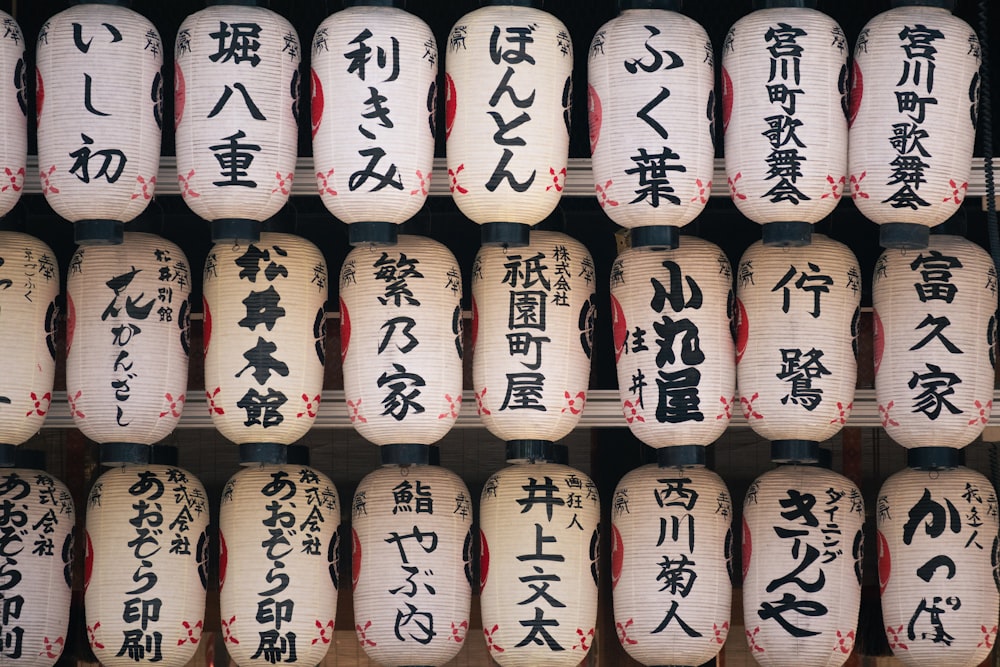 いし初
堀八重
利きみ
ぼんとん
ふく葉
宮川町歌舞会
宮川町歌舞会
花かんざし
松井別館
松井本館
繁乃家
株式会社
祇園町屋
小丸屋
住井
佇鷺
富久家
あおぞら印刷
株式会社
あおぞら印刷
株式会社
あおぞら印刷
株式会社
鮨やぶ内
井上文太
画狂人
西川菊人
ダイニング
きりんや
かっぽ
我楽人